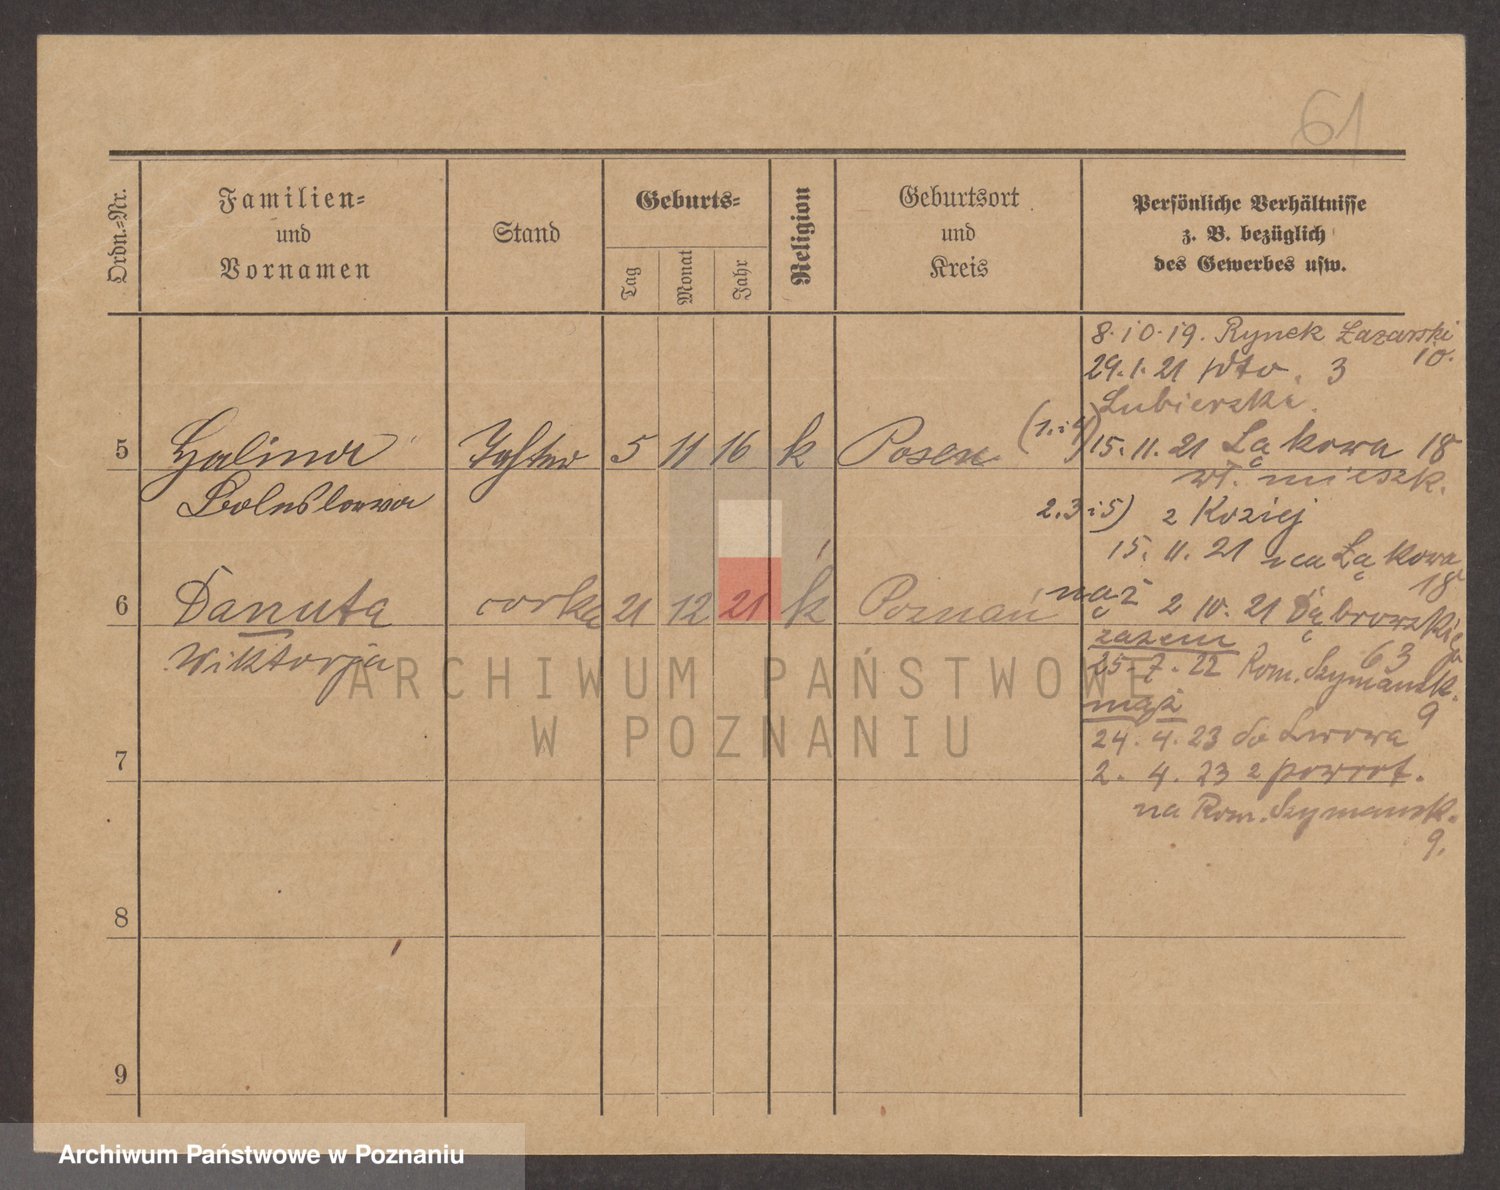 61
Ordn.-Nr.
Familien-
und
Vornamen
Stand
Geburts-
Tag
Monat
Jahr
Religion
Geburtsort
und
Kreis
Persönliche Verhältnisse
z. B. bezüglich
des Gewerbes usw.
8.10.19. Rynek Łazarski
10.
29.1.21 dto. 3
Lubierski.
5 Halina Tochter 5 11 16 k Posen (1. i 4) 15.11.21 Łąkowa 18
wł. mieszk.
Bolesława
2.3 i 5) z Koziej
15. 11. 21 na Łąkowa
18
6 Danuta corka 21 12 21 k Poznań
mąż 2 10. 21 Dąbrowskiego
63
razem
Wiktorja
25-7-22 Rom. Szymansk.
9
mąż
24. 4. 23 do Lwowa
7
2. 4. 23 z powrot.
na Rom. Szymansk.
9.
8
9
ARCHIWUM PAŃSTWOWE
W POZNANIU
Archiwum Państwowe w Poznaniu